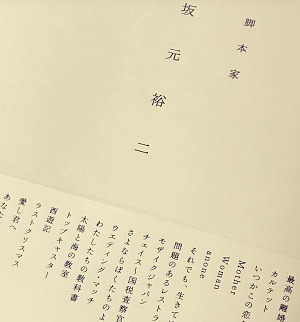 脚本家
坂元裕二
最高の離婚
カルテット
いつかこの恋を
Mother
Woman
anone
それでも、生きて
問題のあるレストラ
モザイクジャパン
チェイス〜国税査察官
さよならぼくたちのよ
ウエディング・マッチ
わたしたちの教科書
太陽と海の教室
トップキャスター
西遊記
ラストクリスマス
愛し君へ
あなた